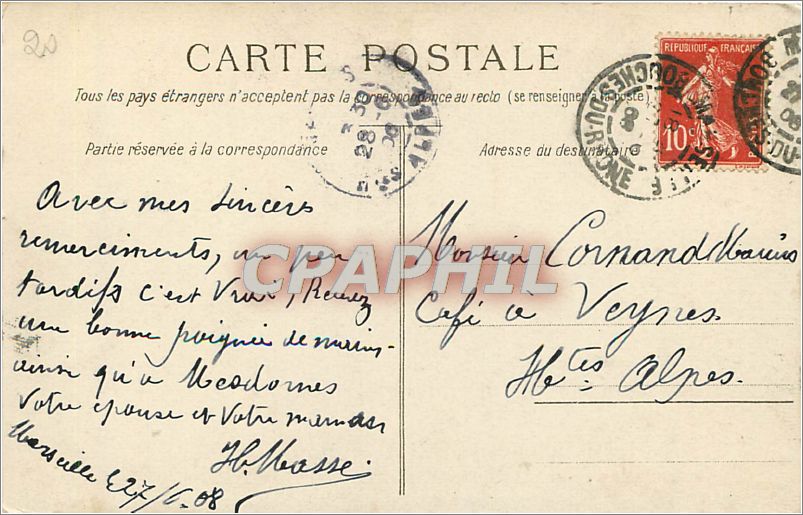 20
CARTE POSTALE
Tous les pays étrangers n'acceptent pas la correspondance au recto (se renseigner à la poste)
Partie réservée à la correspondance
Adresse du destinataire
REPUBLIQUE FRANÇAISE
10c
BOUCHES-DU-RHONE
28
Avec mes sincères
remerciments, un peu
tardifs c'est vrai, Recevez
une bonne poignée de mains
ainsi qu'à Mesdames
Votre épouse et Votre maman
H. Masse
Marseille 27/ .08
Monsieur Cornand Marius
Café à Veynes
Htes Alpes.
CPAPHIL